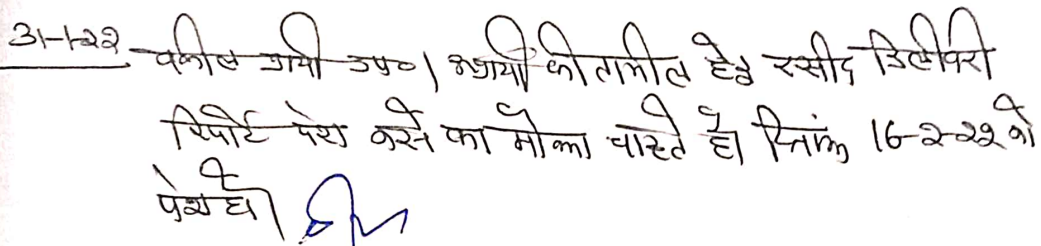 31-1-22 वकील प्रार्थी उप०। अप्रार्थी की तामील हेतु रसीद डिलीवरी
रिपोर्ट पेश करने का मौका चाहते है। दिनांक 16-2-22 को
पेश हो।